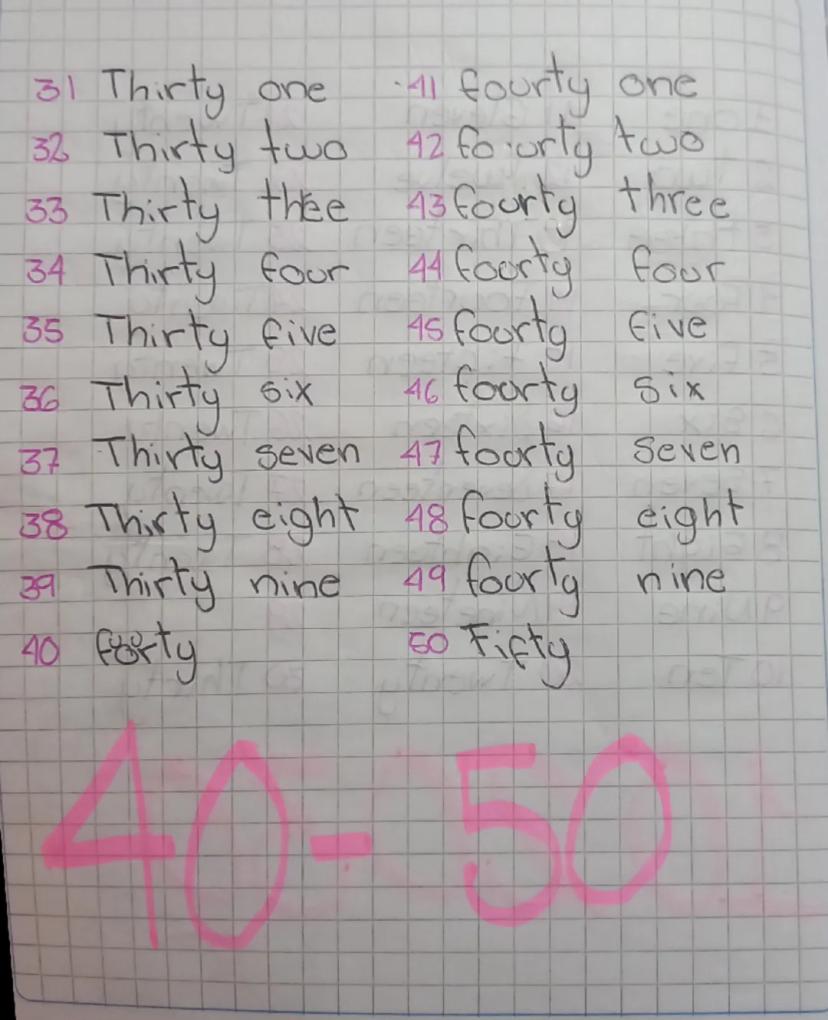 31 Thirty one
32 Thirty two
33 Thirty thee
34 Thirty four
35 Thirty five
36 Thirty six
37 Thirty seven
38 Thirty eight
39 Thirty nine
40 forty
41 fourty one
42 fourty two
43 fourty three
44 fourty four
45 fourty five
46 fourty six
47 fourty seven
48 fourty eight
49 fourty nine
50 Fifty
40-50